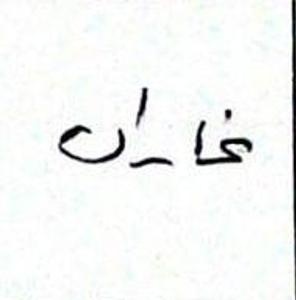 غاران